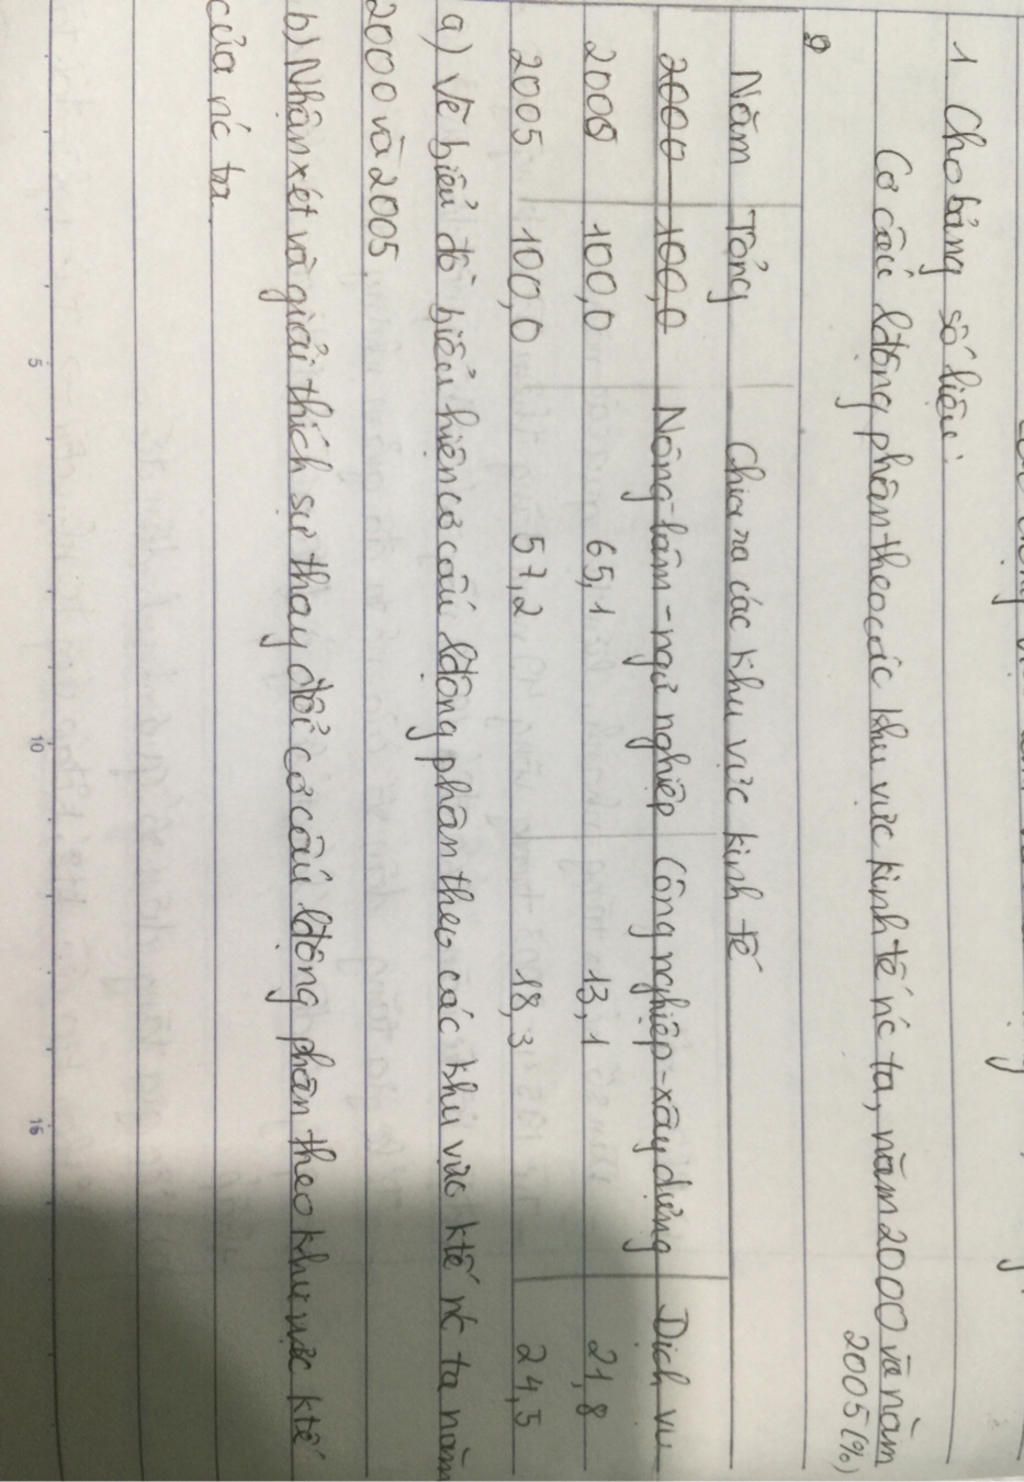 1. Cho bảng số liệu:
Cơ cấu lđộng phân theo các khu vực kinh tế nc ta, năm 2000 và năm
2005 (%)
Năm Tổng Chia ra các khu vực kinh tế
2000 100,0 Nông-lâm-ngư nghiệp Công nghiệp-xây dựng Dịch vụ
2000 100,0 65,1 13,1 21,8
2005 100,0 57,2 18,3 24,5
a) Vẽ biểu đồ biểu hiện cơ cấu lđộng phân theo các khu vực ktế nc ta năm
2000 và 2005.
b) Nhận xét và giải thích sự thay đổi cơ cấu lđộng phân theo khu vực ktế
của nc ta.
5
10
15